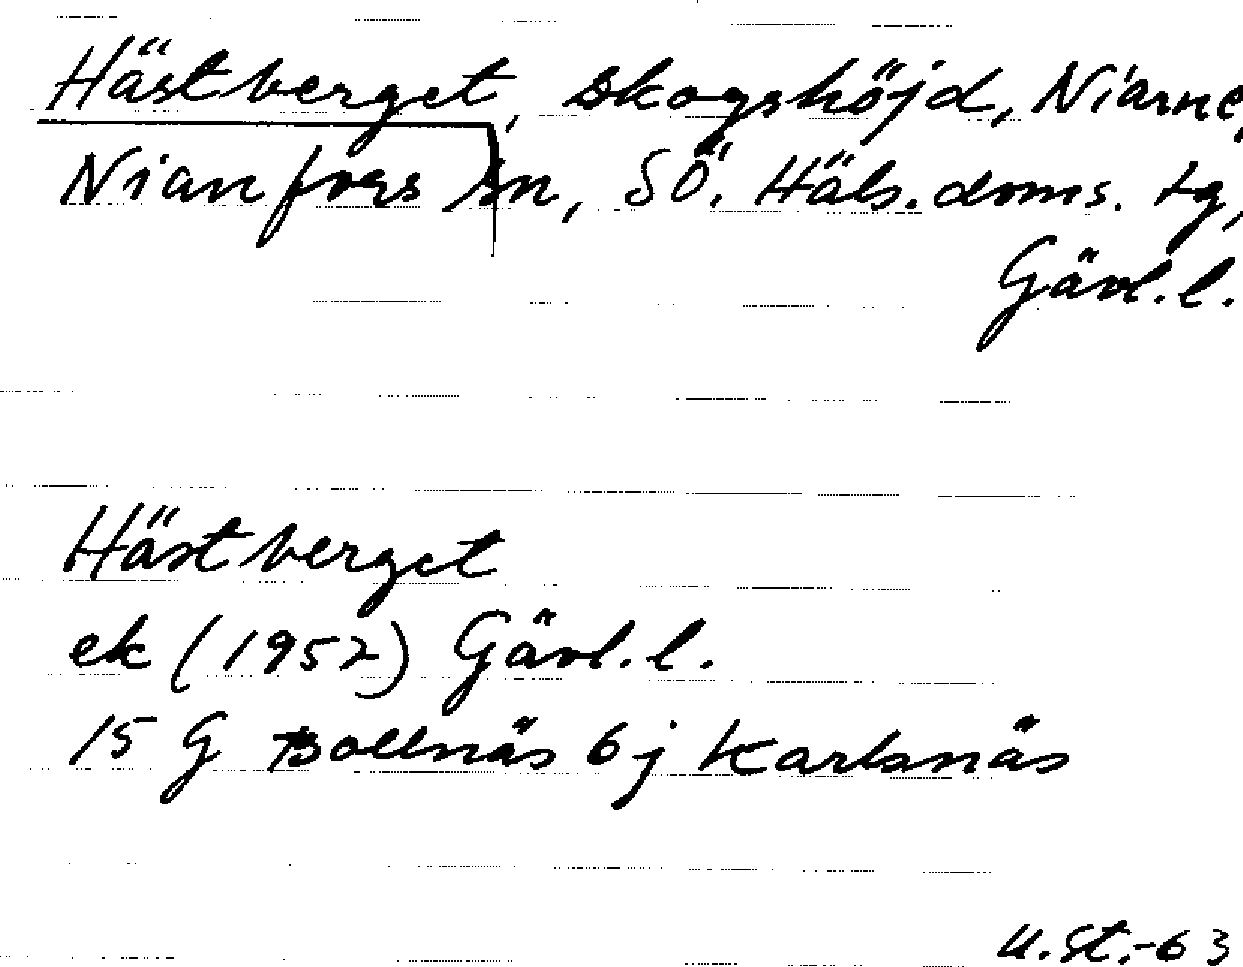 Hästberget, skogshöjd, Niarne,
Nianfors sn, SÖ. Häls. doms. tg,
Gävl. l.
Hästberget
ek (1952) Gävl. l.
15 G Bollnäs 6 j Karlsnäs
U.St.-63